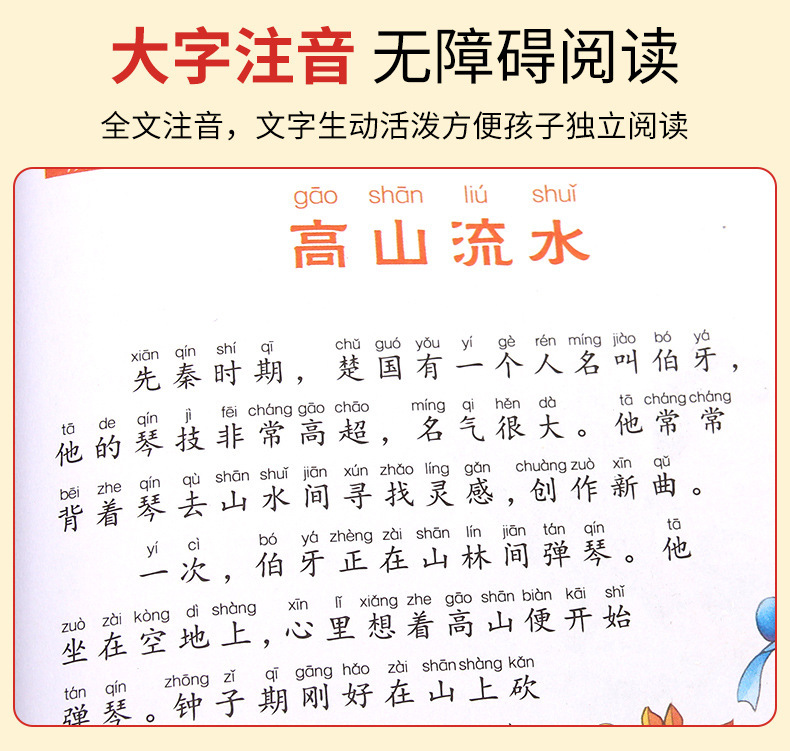 大字注音 无障碍阅读
全文注音，文字生动活泼方便孩子独立阅读
gāo shān liú shuǐ
高山流水
xiān qín shí qī chǔ guó yǒu yí gè rén míng jiào bó yá
先秦时期，楚国有一个人名叫伯牙，
tā de qín jì fēi cháng gāo chāo míng qi hěn dà tā cháng cháng
他的琴技非常高超，名气很大。他常常
bēi zhe qín qù shān shuǐ jiān xún zhǎo líng gǎn chuàng zuò xīn qǔ
背着琴去山水间寻找灵感，创作新曲。
yí cì bó yá zhèng zài shān lín jiān tán qín tā
一次，伯牙正在山林间弹琴。他
zuò zài kòng dì shàng xīn lǐ xiǎng zhe gāo shān biàn kāi shǐ
坐在空地上，心里想着高山便开始
tán qín zhōng zǐ qī gāng hǎo zài shān shàng kǎn
弹琴。钟子期刚好在山上砍